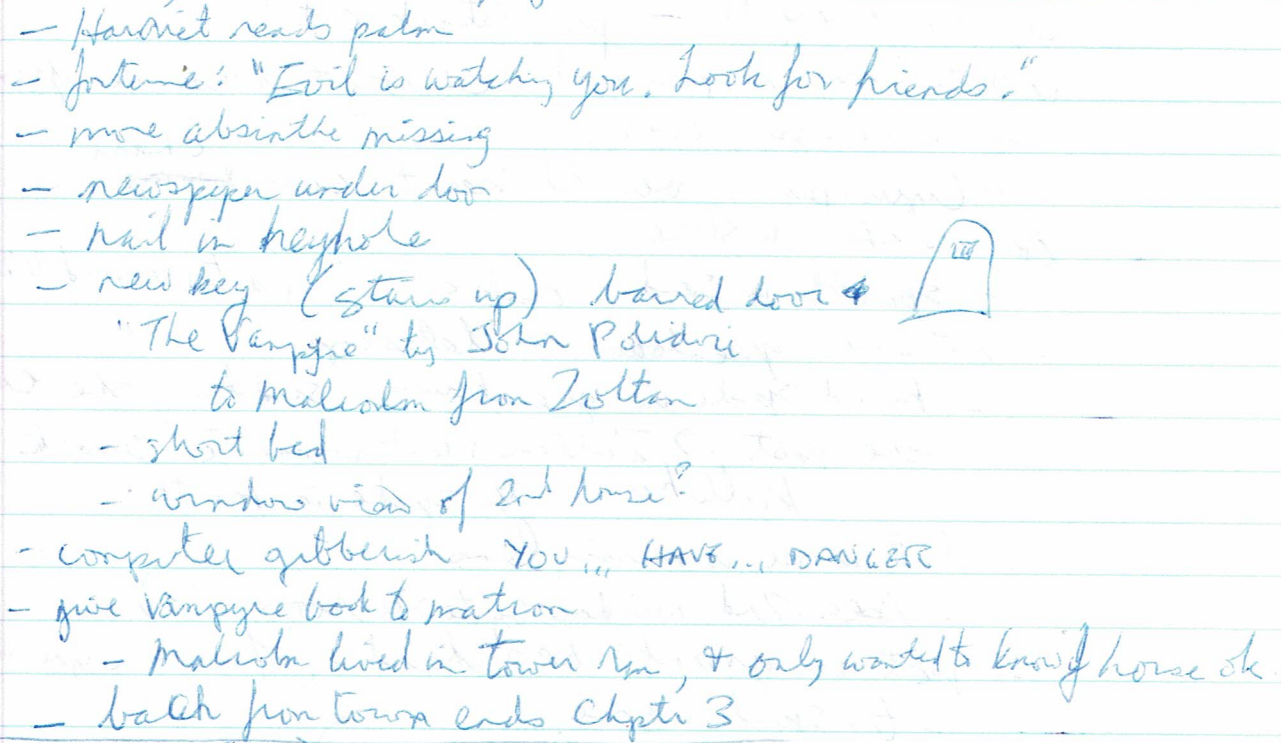 - Harriet reads palm
- fortune: "Evil is watching you. Look for friends."
- more absinthe missing
- newspaper under door
- nail in keyhole
- new key (stairs up) barred door
"The Vampyre" by John Polidori
to Malcolm from Zoltan
- short bed
- window view of 2nd house?
- computer gibberish YOU... HAVE... DANGER
- give Vampyre book to matron
- Malcolm lived in tower rm, & only wanted to know if horse ok.
- back from town ends Chptr 3